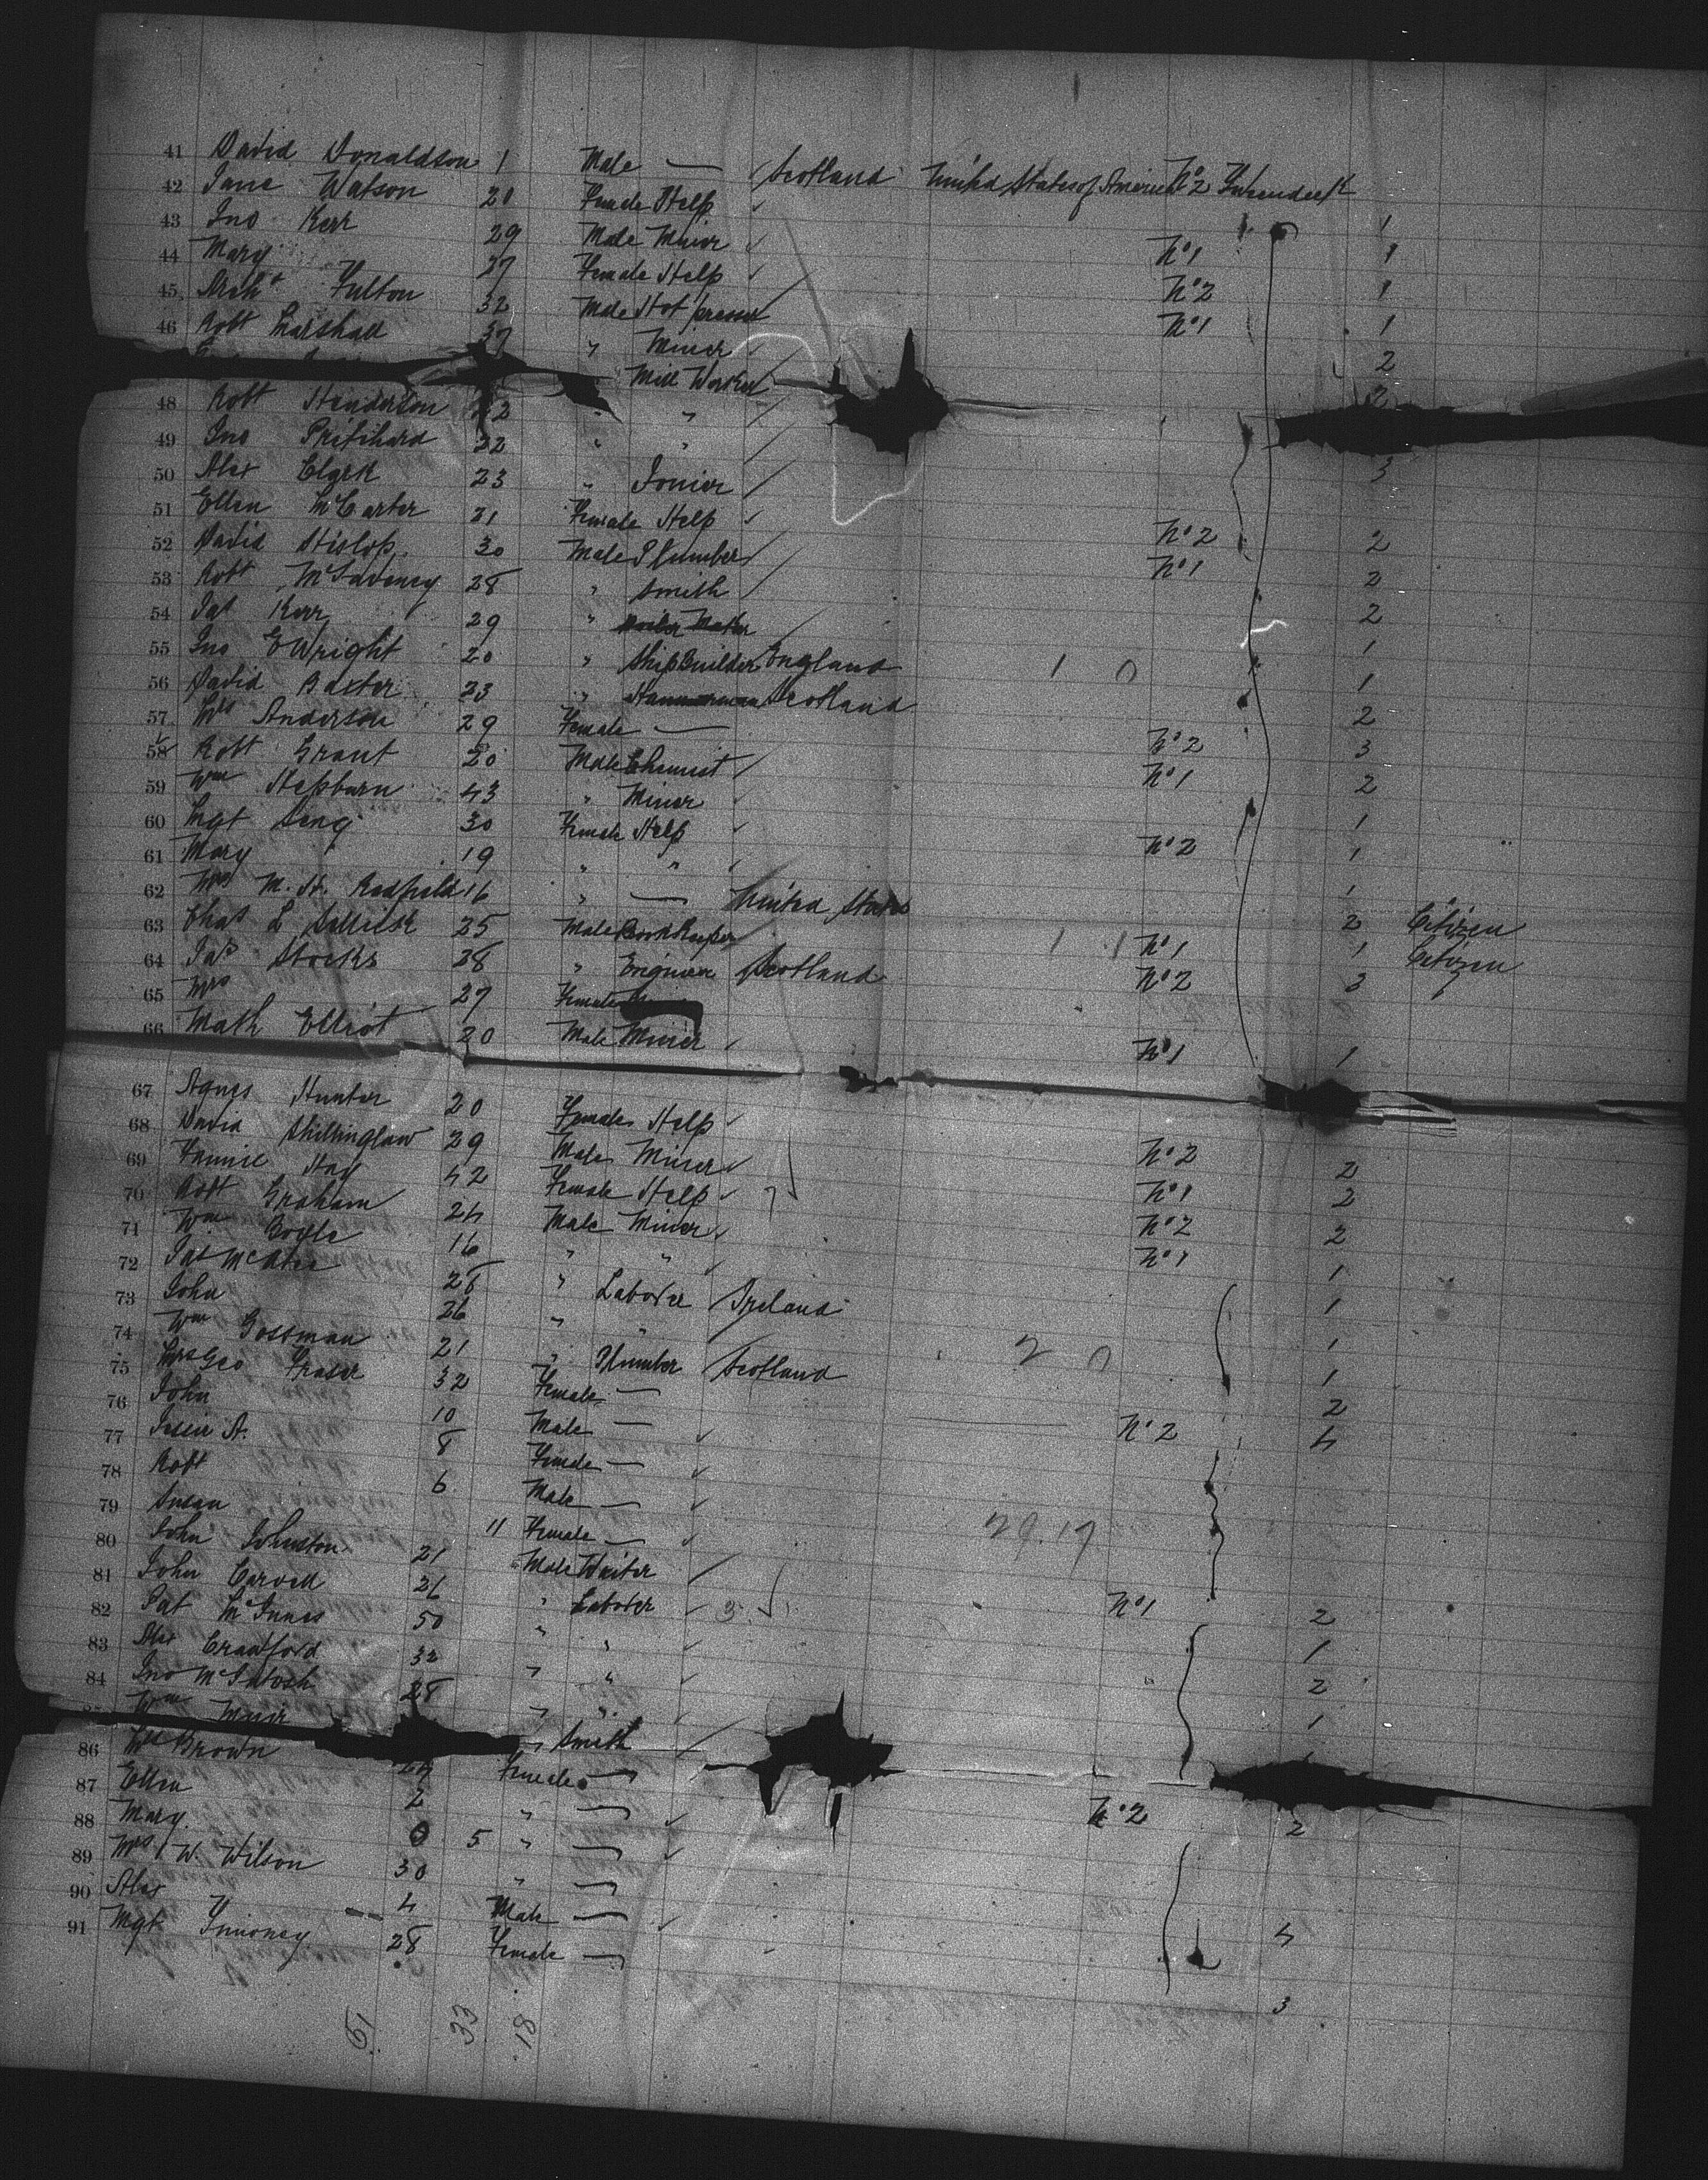 41 David Donaldson 1 Male — Scotland United States of America No 2
42 Jane Watson 20 Female Help 1
43 Jno Kerr 29 Male Miner No 1 1
44 Mary 27 Female Help No 2 1
45 Archd Fulton 32 Male Hot presser No 1 1
46 Robt Marshall 37 " Miner 2
Mill Worker 2
48 Robt Henderson 22 " "
49 Jno Pritchard 22 " " 3
50 Alex Clark 23 " Joiner
51 Ellen McCarter 21 Female Help No 2 2
52 David Hislop 30 Male Plumber No 1 2
53 Robt 28 " Smith 2
54 Jas Kerr 29 " 1
55 Jno E Wright 20 " Ship Builder England 1 0 1
56 David Baxter 23 " Hammerman Scotland 2
57 Mrs Anderson 29 Female — No 2 3
58 Robt Grant 20 Male Chemist No 1 2
59 Wm Hepburn 43 " Miner 1
60 Mgt 30 Female Help No 2 1
61 Mary 19 " " 1
62 Mrs M. H. Redfield 16 " — United States 2 Citizen
63 Chas L 25 Male Book Keeper 1 1 No 1 1 Citizen
64 Jas Stocks 28 " Engineer Scotland No 2 3
65 Mrs 27 Female
66 Math Elliot 20 Male Miner No 1 1
67 Agnes Hunter 20 Female Help No 2 2
68 David Shillinglaw 29 Male Miner No 1 2
69 Fannie Hay 42 Female Help No 2 2
70 Robt Graham 24 Male Miner No 1 1
71 Wm Boyle 16 " " 1
72 Jas McAtee 28 " Laborer Ireland 1
73 John 26 " " 1
74 Wm Gossman 21 " Plumber Scotland 2 0 2
75 Mrs Geo Fraser 32 Female — No 2 4
76 John 10 Male —
77 Jessie A. 8 Female —
78 Robt 6 Male —
79 Susan 11 Female — 29.17
80 John Johnston 21 Male Waiter No 1 2
81 John Carvell 26 " Laborer 3 1
82 Pat McInnes 50 " " 2
83 Alex Crawford 32 " " 1
84 Jno McIntosh 28 " "
85 Wm Muir " Smith
86 Mrs Brown 24 Female — No 2 2
87 Ellen 2 " —
88 Mary 0 5 " —
89 Mrs W. Wilson 30 " — 4
90 Alex 4 Male —
91 Mgt 28 Female — 3
51 33 18